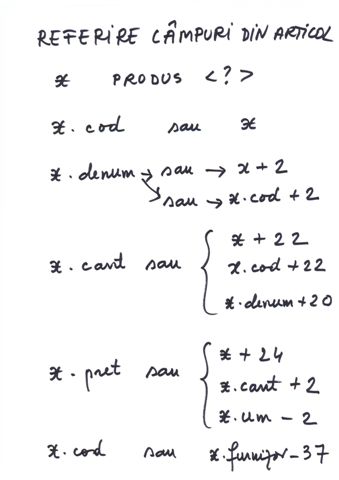 REFERIRE CÂMPURI DIN ARTICOL
x PRODUS <?>
x.cod sau x
x.denum → sau → x+2
→ sau → x.cod+2
x+22
x.cant sau { x.cod+22
x.denum+20
x+24
x.pret sau { x.cant+2
x.um-2
x.cod sau x.furnizor-37